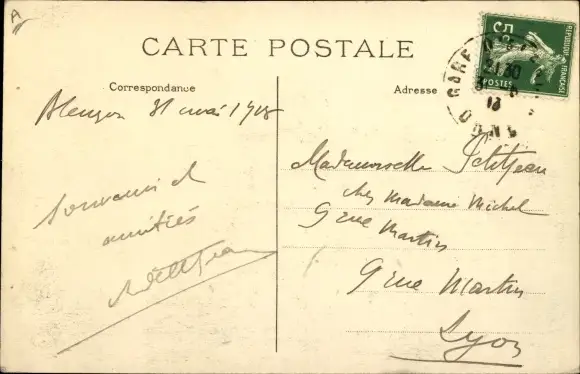 A
CARTE POSTALE
Correspondance
Adresse
Alençon 31 mai 1918
Souvenir et
amitiés
Mademoiselle Petitjean
chez Madame Michel
9 rue Martin
9 rue Martin
Lyon
5c
REPUBLIQUE FRANÇAISE
POSTES
GARE
ORNE